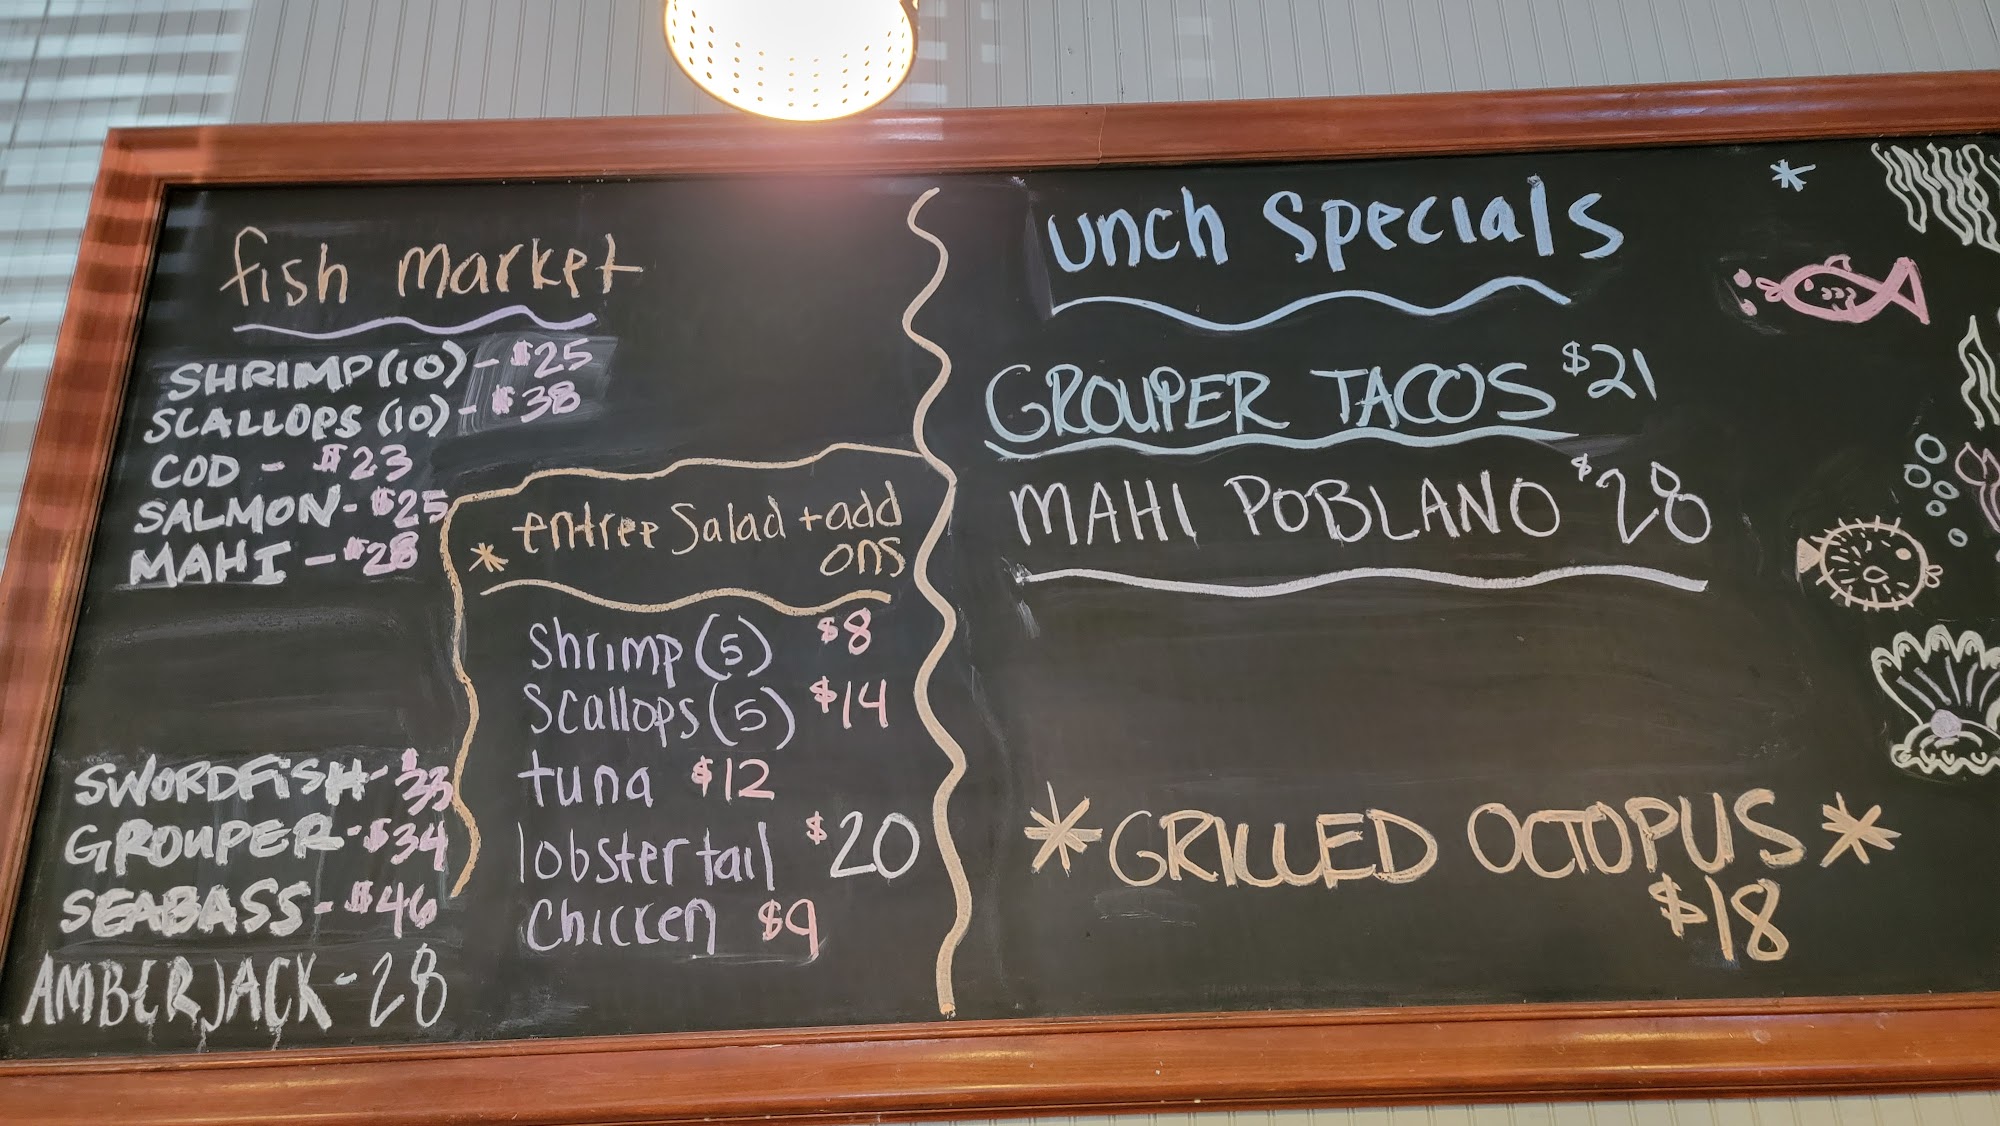 fish market
SHRIMP (10) - $25
SCALLOPS (10) - $38
COD - $23
SALMON - $25
MAHI - $28
SWORDFISH - $33
GROUPER - $34
SEABASS - $46
AMBERJACK - 28
* entree Salad + add
ons
Shrimp (5) $8
Scallops (5) $14
tuna $12
lobster tail $20
Chicken $9
unch Specials
GROUPER TACOS $21
MAHI POBLANO $28
*GRILLED OCTOPUS*
$18